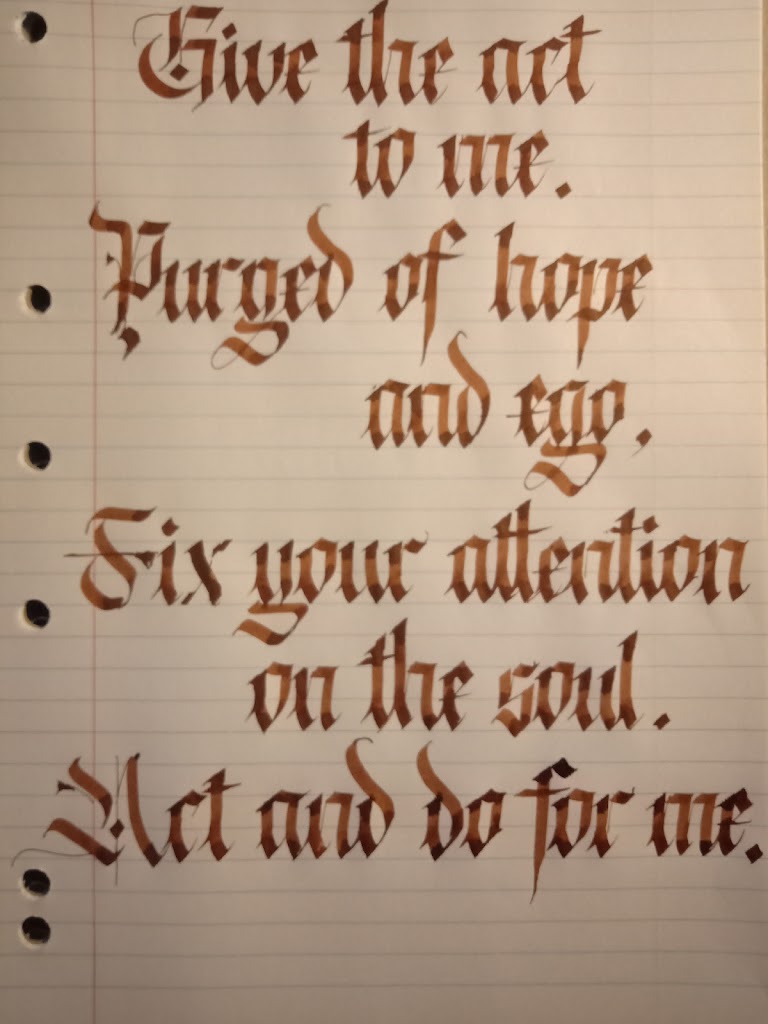 Give the act
to me.
Purged of hope
and ego.
Fix your attention
on the soul.
Act and do for me.